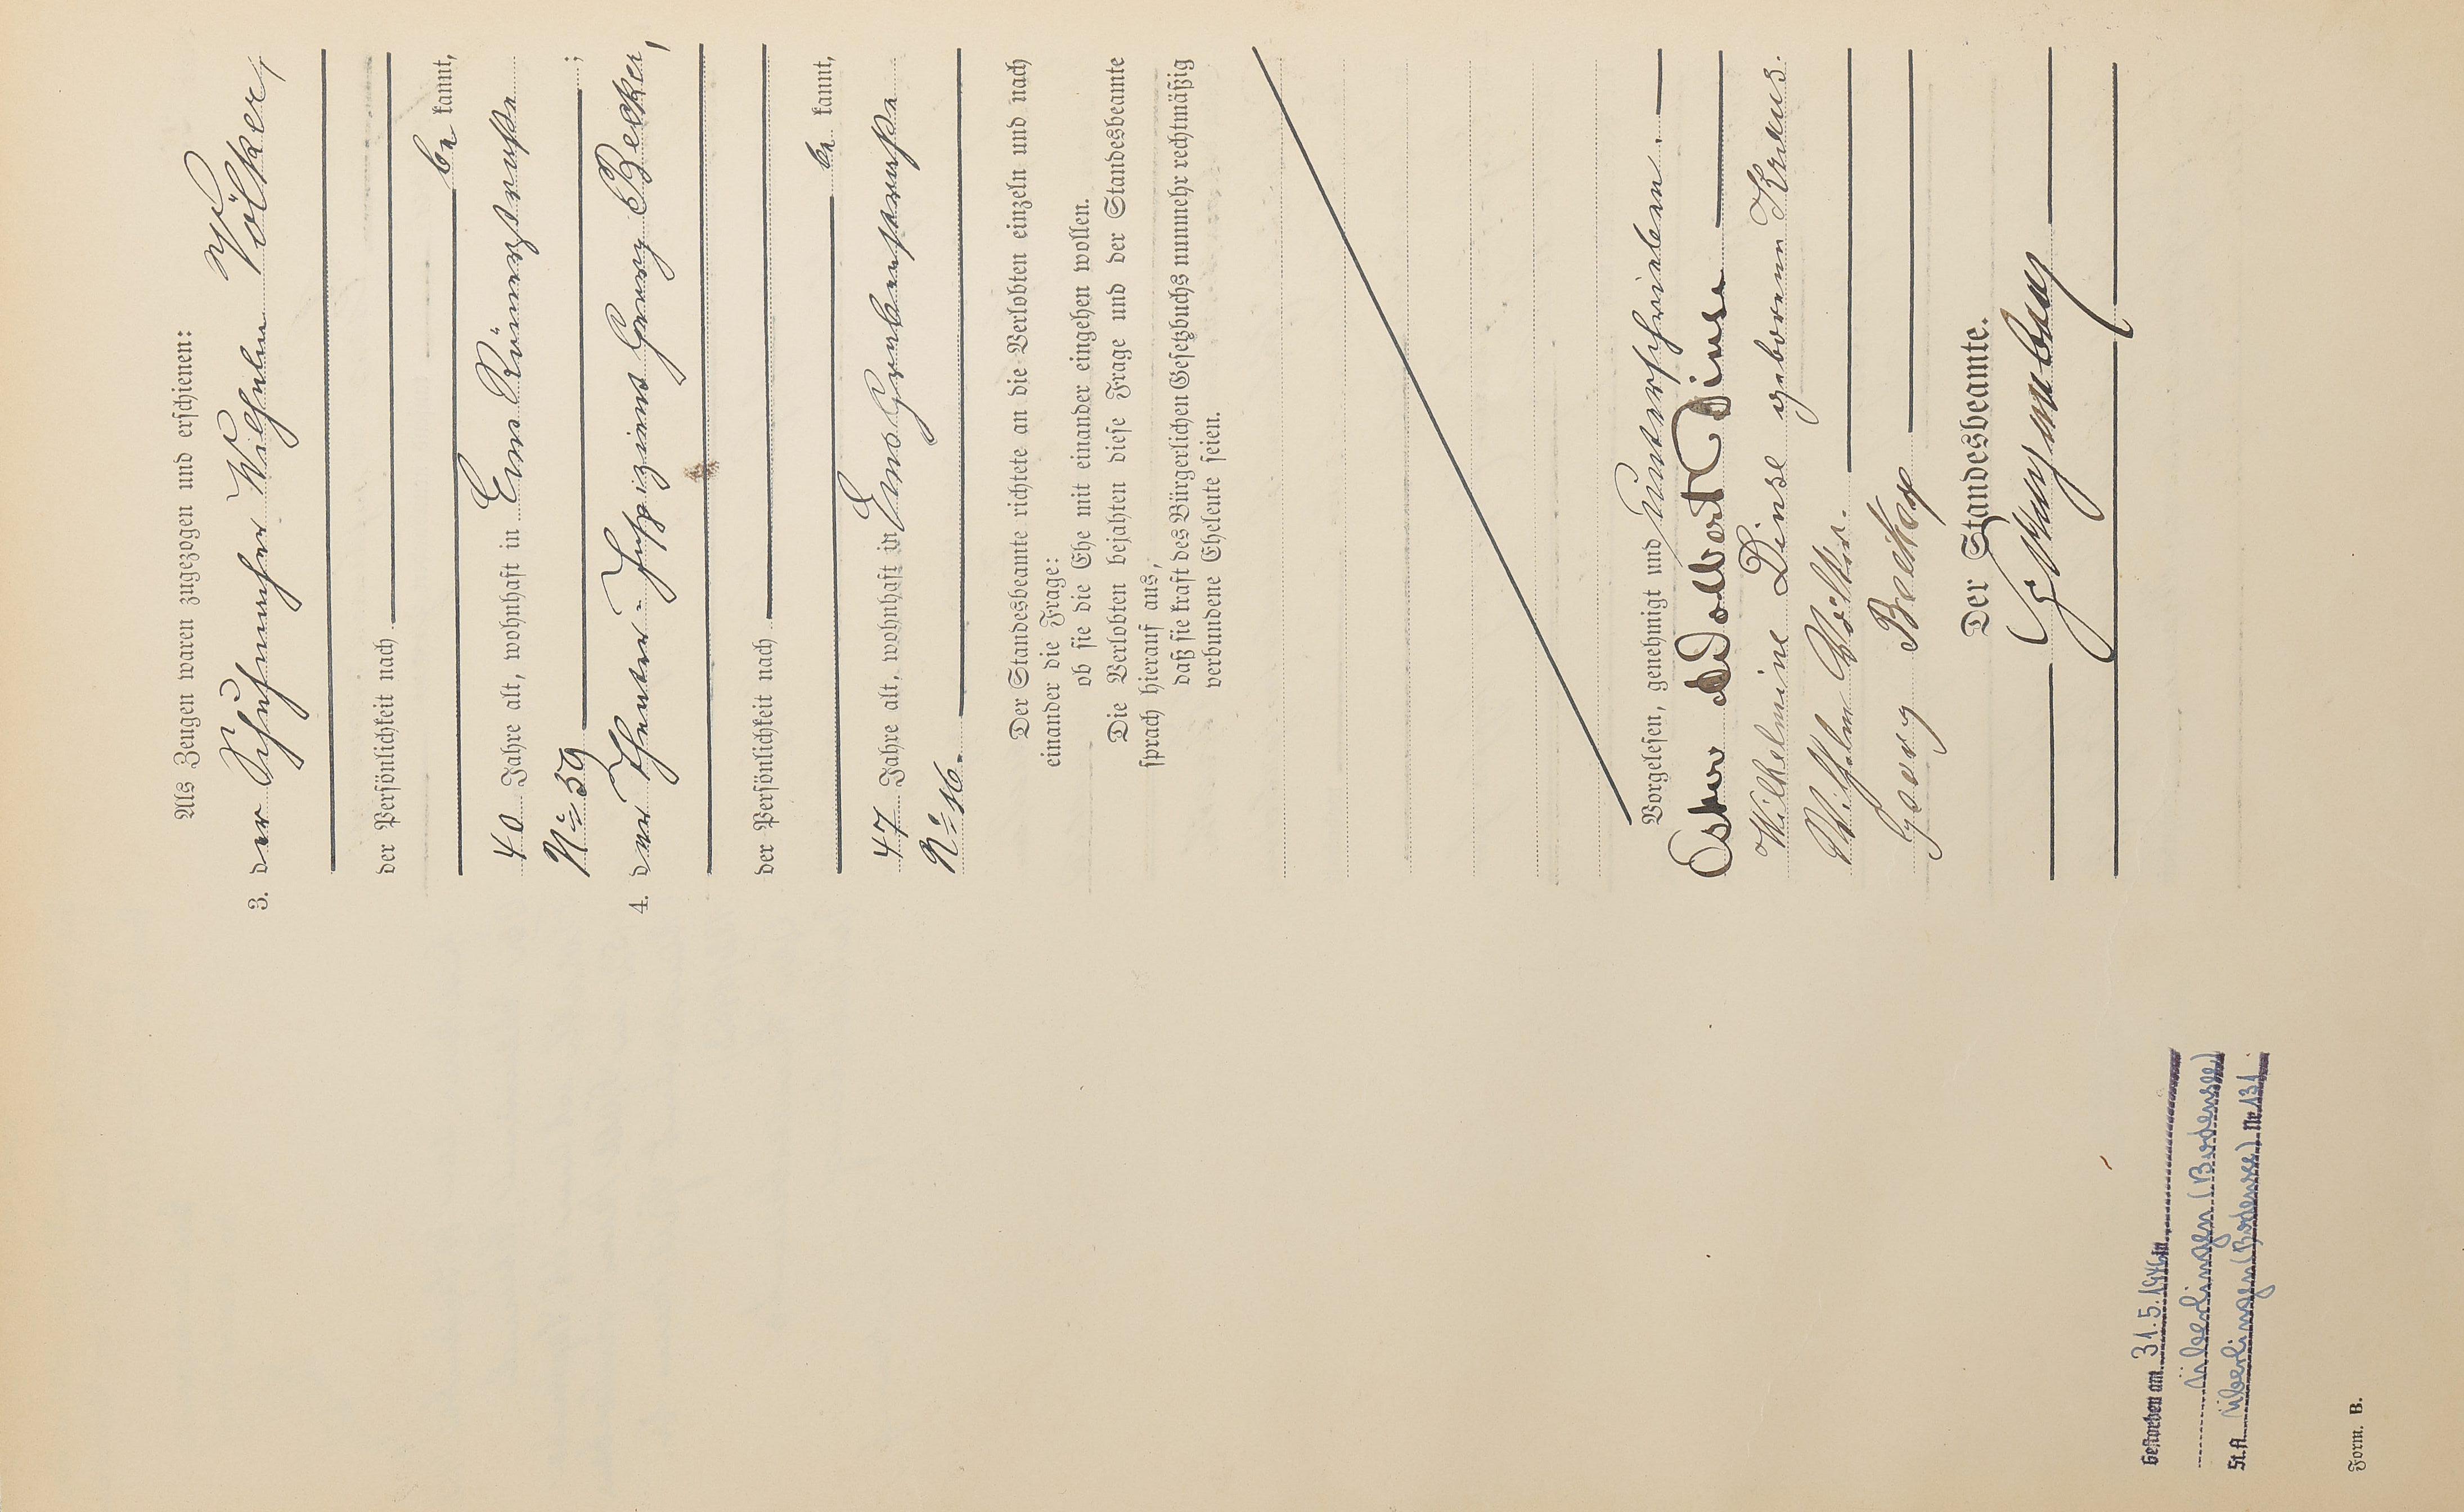 Als Zeugen waren zugezogen und erschienen:
3. der Schuhmacher Wilhelm Völker,
der Persönlichkeit nach
be kannt,
40 Jahre alt, wohnhaft in Ems Römerstraße
No 59 ;
4. der Theater-Inspizient Georg Becker,
der Persönlichkeit nach
be kannt,
47 Jahre alt, wohnhaft in Ems Grabenstraße
No 16.
Der Standesbeamte richtete an die Verlobten einzeln und nach
einander die Frage:
ob sie die Ehe mit einander eingehen wollen.
Die Verlobten bejahten diese Frage und der Standesbeamte
sprach hierauf aus,
daß sie kraft des Bürgerlichen Gesetzbuchs nunmehr rechtmäßig
verbundene Eheleute seien.
Vorgelesen, genehmigt und unterschrieben.
Oskar Adalbert Dinse
Wilhelmine Dinse geborene Kraus.
Wilhelm Völker.
Georg Becker
Der Standesbeamte.
Gestorben am 31.5.1946 in
Überlingen (Bodensee)
St.A. Überlingen (Bodensee) Nr. 131
Form. B.